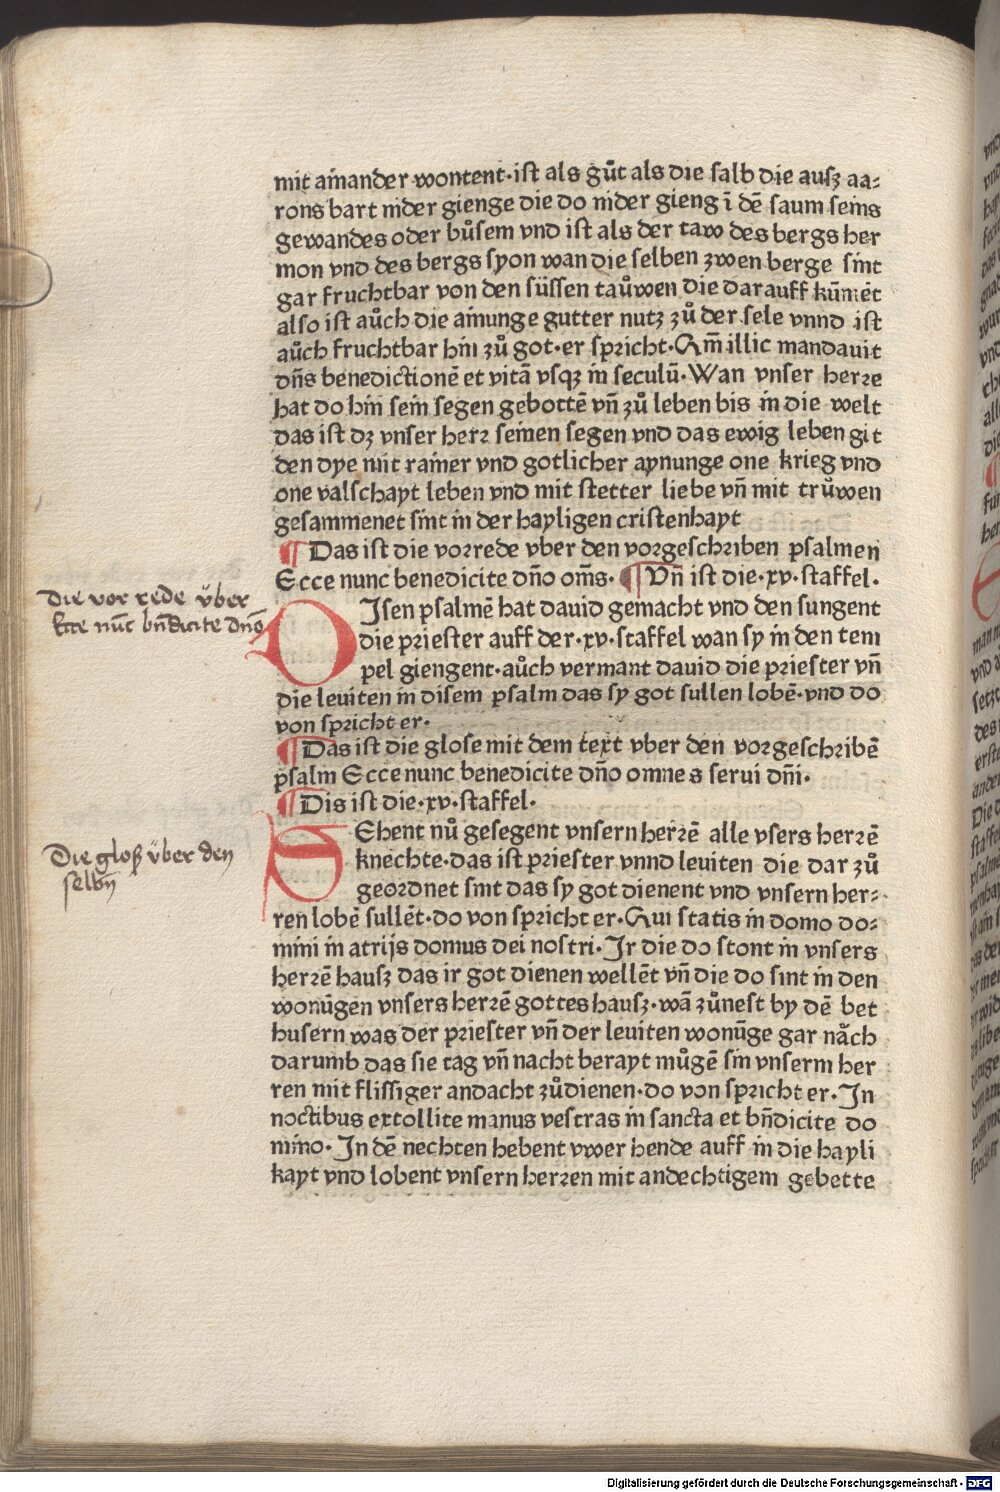 mit ainander wontent·ist als gůt als die salb die ausz aa⸗
rons bart nider gienge die do nider gieng ī dē saum seins
gewandes oder bůsem vnd ist als der taw des bergs her
mon vnd des bergs syon wan die selben zwen berge sint
gar fruchtbar von den süssen taůwen die darauff kūmēt
also ist aůch die ainunge gutter nutz zů der sele vnnd ist
aůch fruchtbar hin zů got·er spricht·Qm̄ illic mandauit
dn̄s benedictionē et vitā vsqz in seculū·Wan vnser herre
hat do hin sein segen gebottē vn̄ zů leben bis in die welt
das ist dz vnser herr seinen segen vnd das ewig leben git
den dye mit rainer vnd gotlicher aynunge one krieg vnd
one valschayt leben vnd mit stetter liebe vn̄ mit trůwen
gesammenet sint in der hayligen cristenhayt
¶ Das ist die vorrede vber den vorgeschriben psalmen
Ecce nunc benedicite dn̄o om̄s· ¶ Vn̄ ist die·xv·staffel·
Die vor rede über
Ecce nūc bn̄dicite dn̄o
DIsen psalmē hat dauid gemacht vnd den sungent
die priester auff der·xv·staffel wan sy in den tem
pel giengent·aůch vermant dauid die priester vn̄
die leuiten in disem psalm das sy got sullen lobē·vnd do
von spricht er·
¶ Das ist die glose mit dem text vber den vorgeschribē
psalm Ecce nunc benedicite dn̄o omnes serui dn̄i·
¶ Dis ist die·xv·staffel·
Die gloß über den
selbn̄
SEhent nů gesegent vnsern herrē alle vsers herrē
knechte·das ist priester vnnd leuiten die dar zů
geordnet sint das sy got dienent vnd vnsern her⸗
ren lobē sullēt·do von spricht er·Qui statis in domo do⸗
mini in atrijs domus dei nostri·Ir die do stont in vnsers
herrē hausz das ir got dienen wellēt vn̄ die do sint in den
wonūgen vnsers herrē gottes hausz·wā zůnest by dē bet
husern was der priester vn̄ der leuiten wonūge gar nǎch
darumb das sie tag vn̄ nacht berayt můgē sin vnserm her
ren mit flissiger andacht zůdienen·do von spricht er·In
noctibus extollite manus vestras in sancta et bn̄dicite do
mino·In dē nechten hebent vwer hende auff in die hayli
kayt vnd lobent vnsern herren mit andechtigem gebette
Digitalisierung gefördert durch die Deutsche Forschungsgemeinschaft - DFG